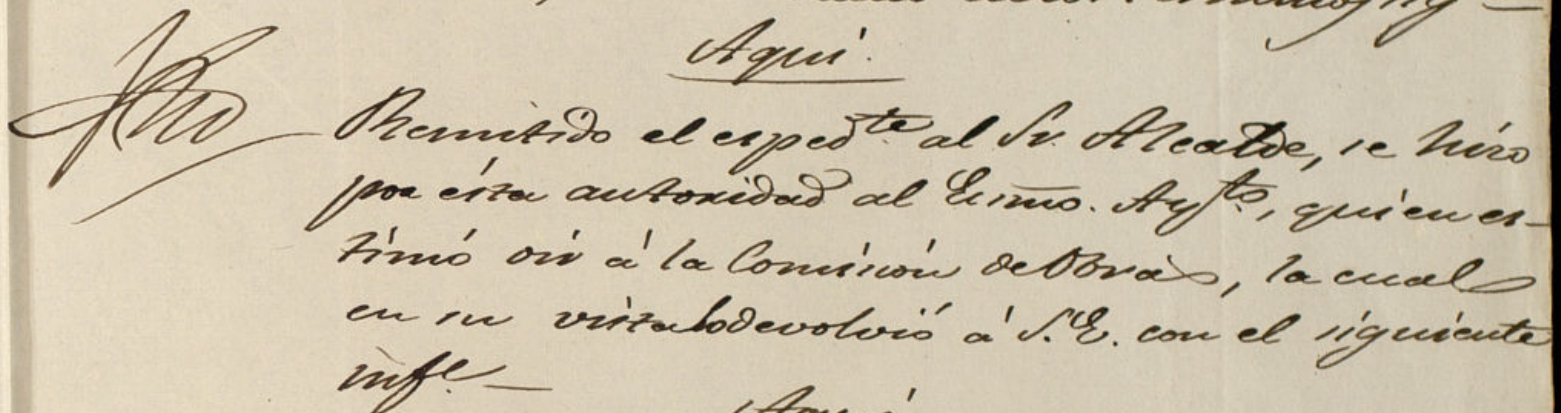 Aqui.
Remitido el esped.te al Sr. Alcalde, se hizo
por ésta autoridad al Exmo. Ayt.to, quien es-
timó oir á la Comisión de Obras, la cual
en su vista lo devolvió á S.E. con el siguiente
infe. —